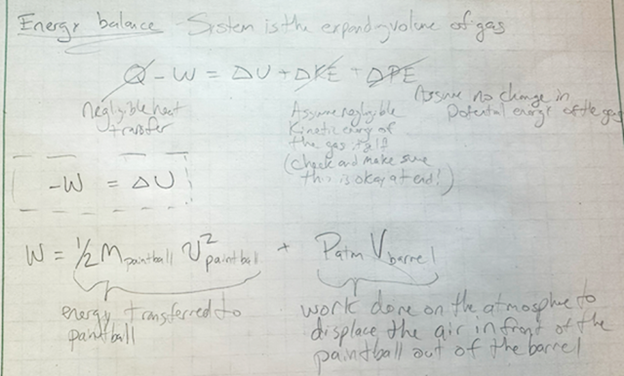 Energy balance - System is the expanding volume of gas
Q - W = ΔU + ΔKE + ΔPE
Neglgible heat transfer
Assume negligible
Kinetic energy of
the gas itself
(Check and make sure
this is okay at end!)
Assume no change in
potential energy of the gas
-W = ΔU
W = 1/2 m paintball V² paintball + Patm V barrel
energy transferred to
paintball
work done on the atmosphere to
displace the air in front of the
paintball out of the barrel